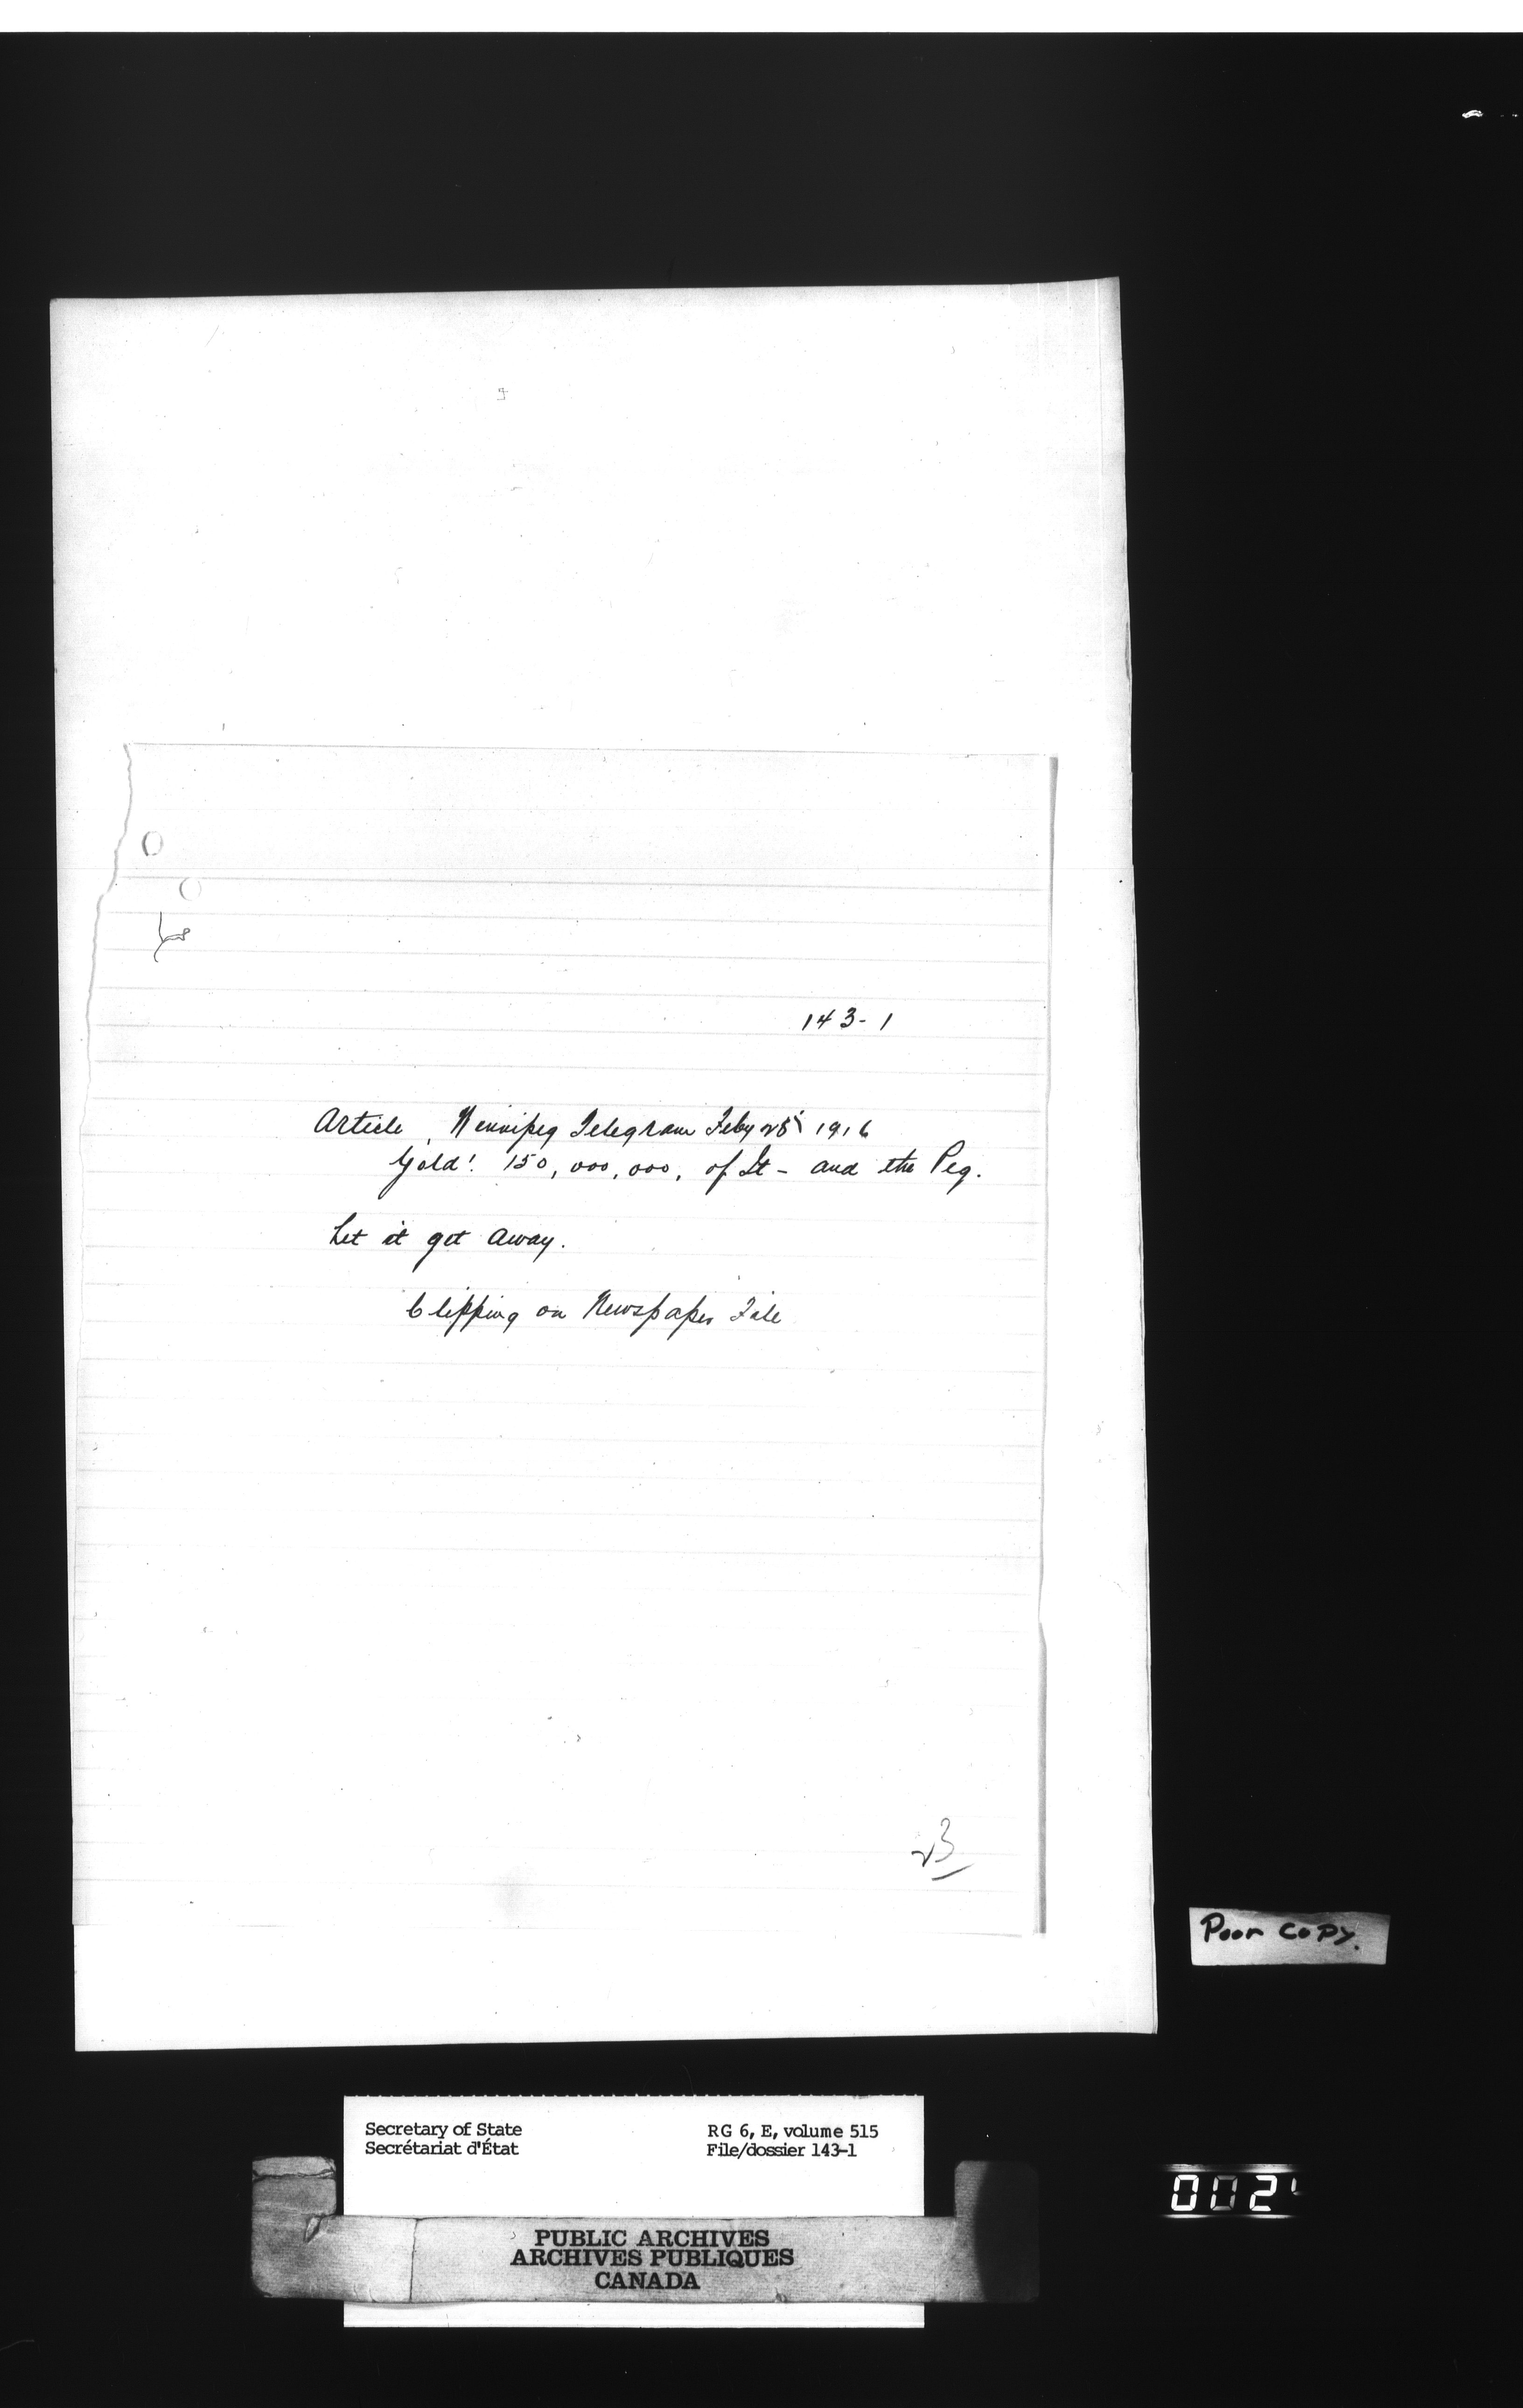 143-1
Article, Winnipeg Telegram Feby 25 1916
Gold! 150,000,000, of It - and the Peg.
Let it get away.
Clipping on Newspaper File
23
Poor Copy.
Secretary of State
Secrétariat d'État
RG 6, E, volume 515
File/dossier 143-1
PUBLIC ARCHIVES
ARCHIVES PUBLIQUES
CANADA
002